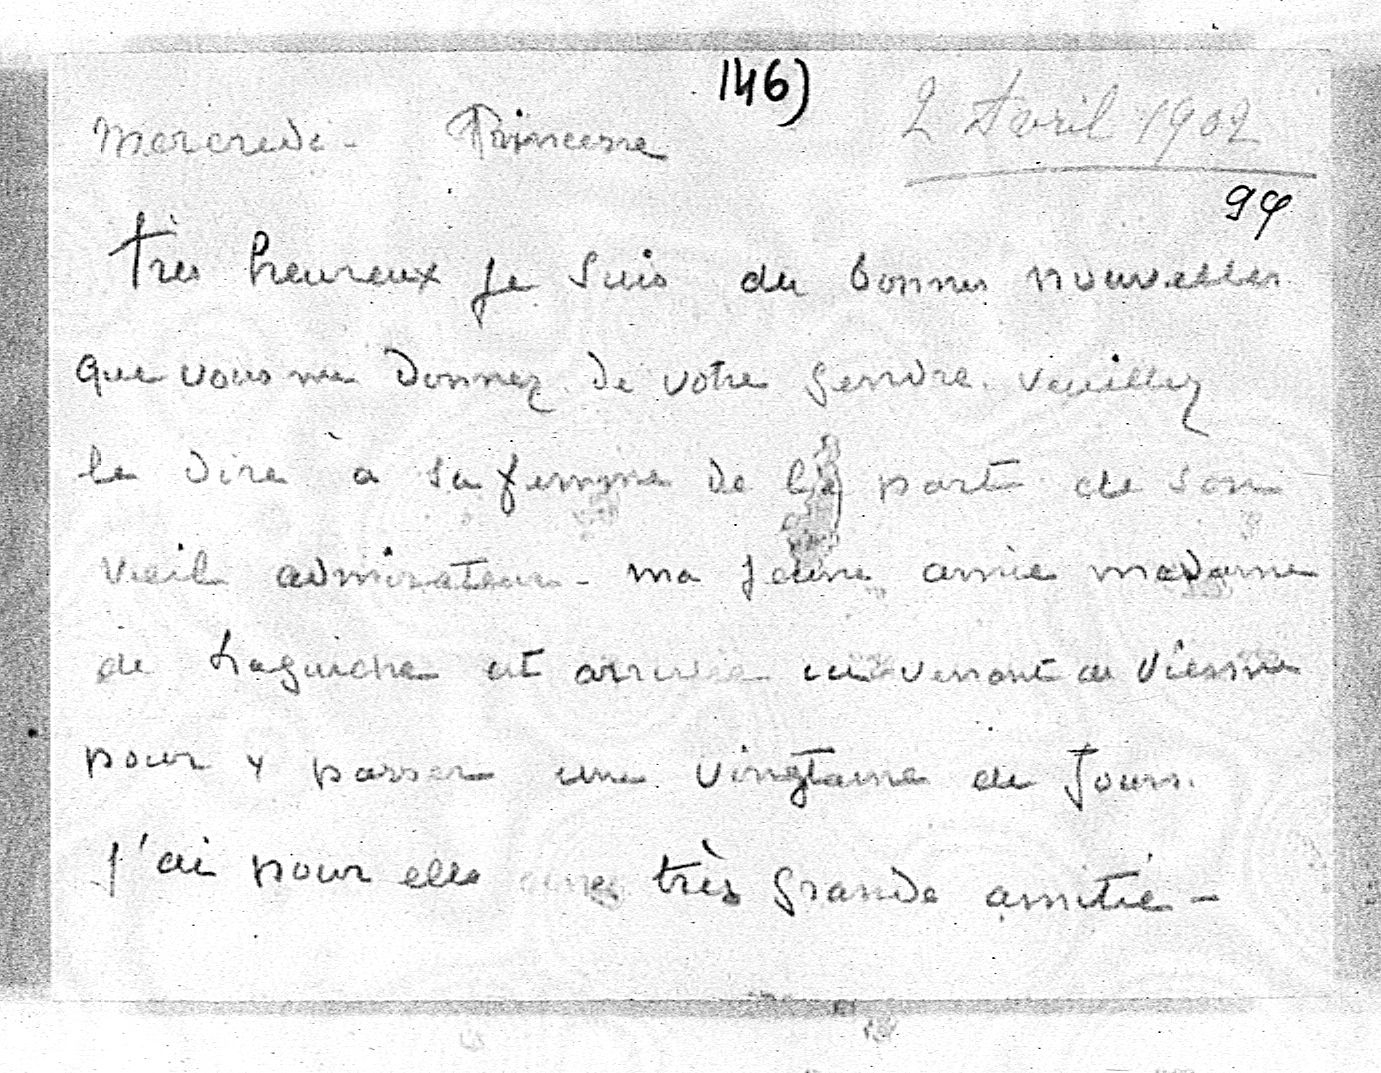 146)
Mercredi - Princesse 2 Avril 1902
99
Très heureux je suis des bonnes nouvelles
que vous me donnez de votre gendre. Veuillez
le dire à sa femme de la part de son
vieil admirateur - ma jeune amie madame
de Laguiche est arrivée ici venant de Vienne
pour y passer une vingtaine de jours.
J'ai pour elle une très grande amitié -